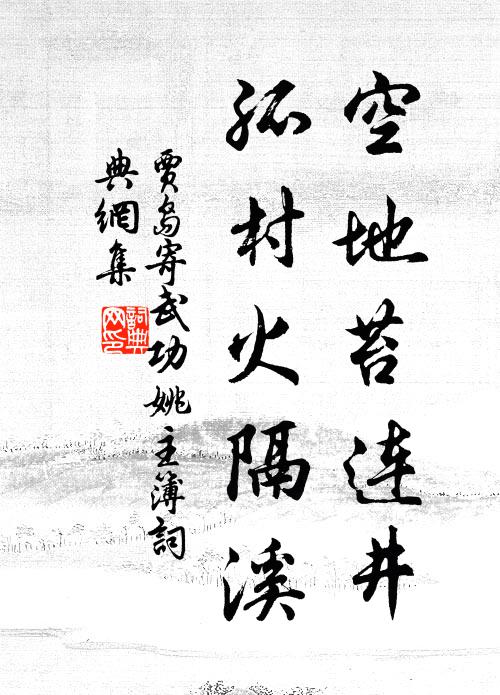 空地苔连井
孤村火隔溪
賈島寄武功姚主簿詞
典網集
詞典
网印